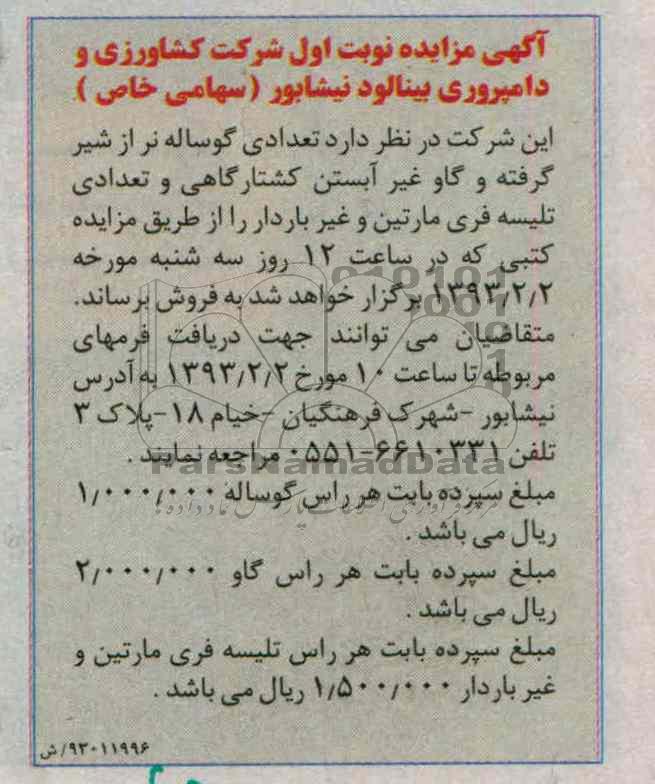 آگهی مزایده نوبت اول شرکت کشاورزی و
دامپروری بینالود نیشابور (سهامی خاص)
این شرکت در نظر دارد تعدادی گوساله نر از شیر
گرفته و گاو غیر آبستن کشتارگاهی و تعدادی
تلیسه فری مارتین و غیر باردار را از طریق مزایده
کتبی که در ساعت ۱۲ روز سه شنبه مورخه
۱۳۹۳/۲/۲ برگزار خواهد شد به فروش برساند.
متقاضیان می توانند جهت دریافت فرمهای
مربوطه تا ساعت ۱۰ مورخ ۱۳۹۳/۲/۲ به آدرس
نیشابور -شهرک فرهنگیان -خیام ۱۸-پلاک ۳
تلفن ۶۶۱۰۳۳۱-۰۵۵۱ مراجعه نمایند .
ParsNamadData
مبلغ سپرده بابت هر راس گوساله ۱/۰۰۰/۰۰۰
ریال می باشد .
مبلغ سپرده بابت هر راس گاو ۲/۰۰۰/۰۰۰
ریال می باشد .
مبلغ سپرده بابت هر راس تلیسه فری مارتین و
غیر باردار ۱/۵۰۰/۰۰۰ ریال می باشد .
۹۳۰۱۱۹۹۶/ش